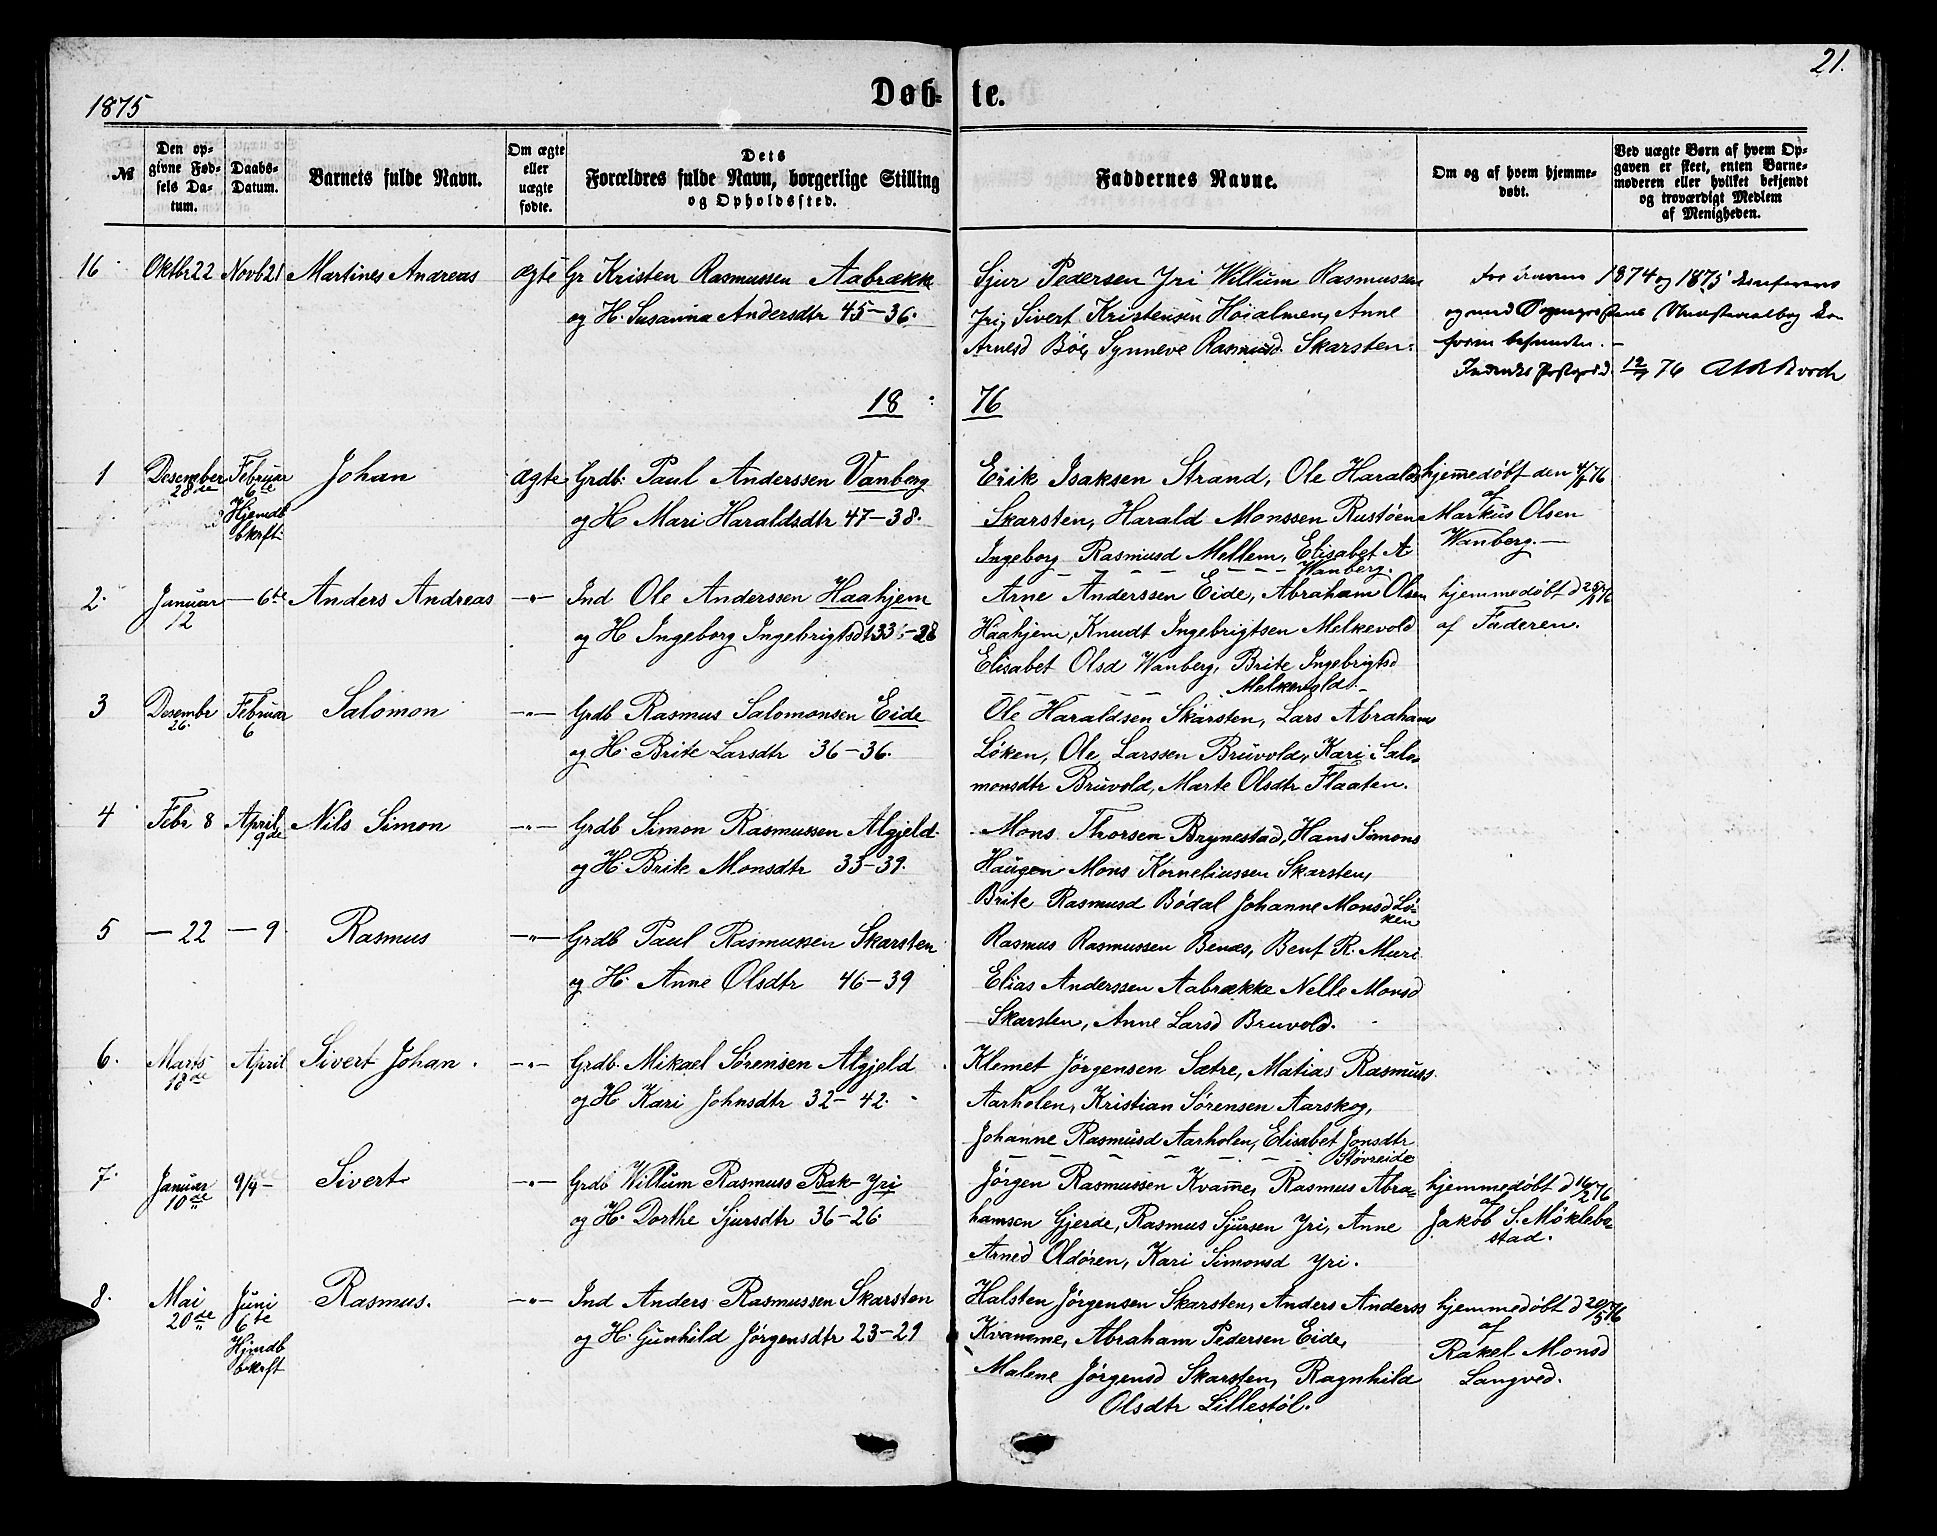 21.
1875
Døb- te.
№
Den opgivne Fødsels Datum.
Daabs-Datum.
Barnets fulde Navn.
Om ægte eller uægte fødte.
Dets Forældres fulde Navn, borgerlige Stilling og Opholdssted.
Faddernes Navne.
Om og af hvem hjemmedøbt.
Ved uægte Børn af hvem Opgaven er skeet, enten Barnemoderen eller hvilket bekjendt og troværdigt Medlem af Menigheden.
16 Oktbr 22 Novb 21 Martines Andreas ægte Gr Kristen Rasmussen Aabrække
og H. Susanna Andersdtr 45-36.
Sjur Pedersen Yri Willum Rasmussen
Yri, Sivert Kristensen Høialmen, Anne
Arnesd Böe, Synneve Rasmusd. Skarsten.
For 1874 og 1875
og med
12/7 76
18 76
1 Desember 28de Februar 6te Hjemdb bkrft: Johan ægte Grdb: Paul Anderssen Vanberg
og H Mari Haraldsdtr 47-38.
Erik Isaksen Strand, Ole Haralds
Skarsten, Harald Monssen Rustöen
Ingeborg Rasmusd Mellem, Elisabet A.
Wanberg.
hjemmedöbt den 4/1 76
af
Markus Olsen
Wanberg.
2. Januar 12 - 6te Anders Andreas -"- Ind Ole Anderssen Haahjem
og H Ingeborg Ingebrigtsdt 33-28
Arne Anderssen Eide, Abraham Olsen
Haahjem, Knudt Ingebrigtsen Melkevold
Elisabet Olsd Wanberg, Brite Ingebrigtsd
Melkevold.
hjemmedöbt d 25/1 76
af Faderen.
3 Desembr 26. Februar 6 Salomon -"- Grdb Rasmus Salomonsen Eide
og H. Brite Larsdtr 36-36.
Ole Haraldsen Skarsten, Lars Abrahams
Löken, Ole Larssen Bruvold, Kari Salo-
monsdtr Bruvold, Marte Olsdtr Flaaten.
4 Febr 8 April 9de Nils Simon -"- Grdb Simon Rasmussen Algjeld
og H. Brite Monsdtr 35-39.
Mons Thorsen Brynestad, Hans Simons
Haugen Mons Korneliussen Skarsten,
Brite Rasmusd Bödal Johanne Monsd Lö-
ken
5 - 22 - 9 Rasmus -"- Grdb Paul Rasmussen Skarsten
og H. Anne Olsdtr 46-39
Rasmus Rasmussen Benæs, Bent R. Muri
Elias Anderssen Aabrække Nelle Monsd
Skarsten, Anne Larsd Bruvold.
6. Marts 18de April Sivert Johan. -"- Grdb. Mikael Sörensen Algjeld
og H Kari Johnsdtr 32-42.
Klemet Jörgensen Sætre, Matias Rasmuss
Aarholen, Kristian Sörensen Aarskog,
Johanne Rasmusd Aarholen, Elisabet Jonsdtr
Stövreide
7. Januar 10de 9/4- Sivert -"- Grdb Willum Rasmuss Bak-Yri
og H. Dorthe Sjursdtr 36-26.
Jörgen Rasmussen Kvame, Rasmus Abra-
hamsen Gjerde, Rasmus Sjursen Yri, Anne
Arned Oldören, Kari Simonsd Yri.
hjemmedöbt d 16/2 76
af
Jakob S. Mökleba
stad.
8. Mai 20de Juni 6te Hjmdb bkrft Rasmus. -"- Ind Anders Rasmussen Skarsten
og H. Gunhild Jörgensdtr 23-29
Halsten Jörgensen Skarsten, Anders Anderss
Kvamme, Abraham Pedersen Eide,
Malene Jörgensd Skarsten, Ragnhild
Olsdtr Lillestöl.
hjemmedöbt d 20/5 76
af
Rakel Monsd
Langved.